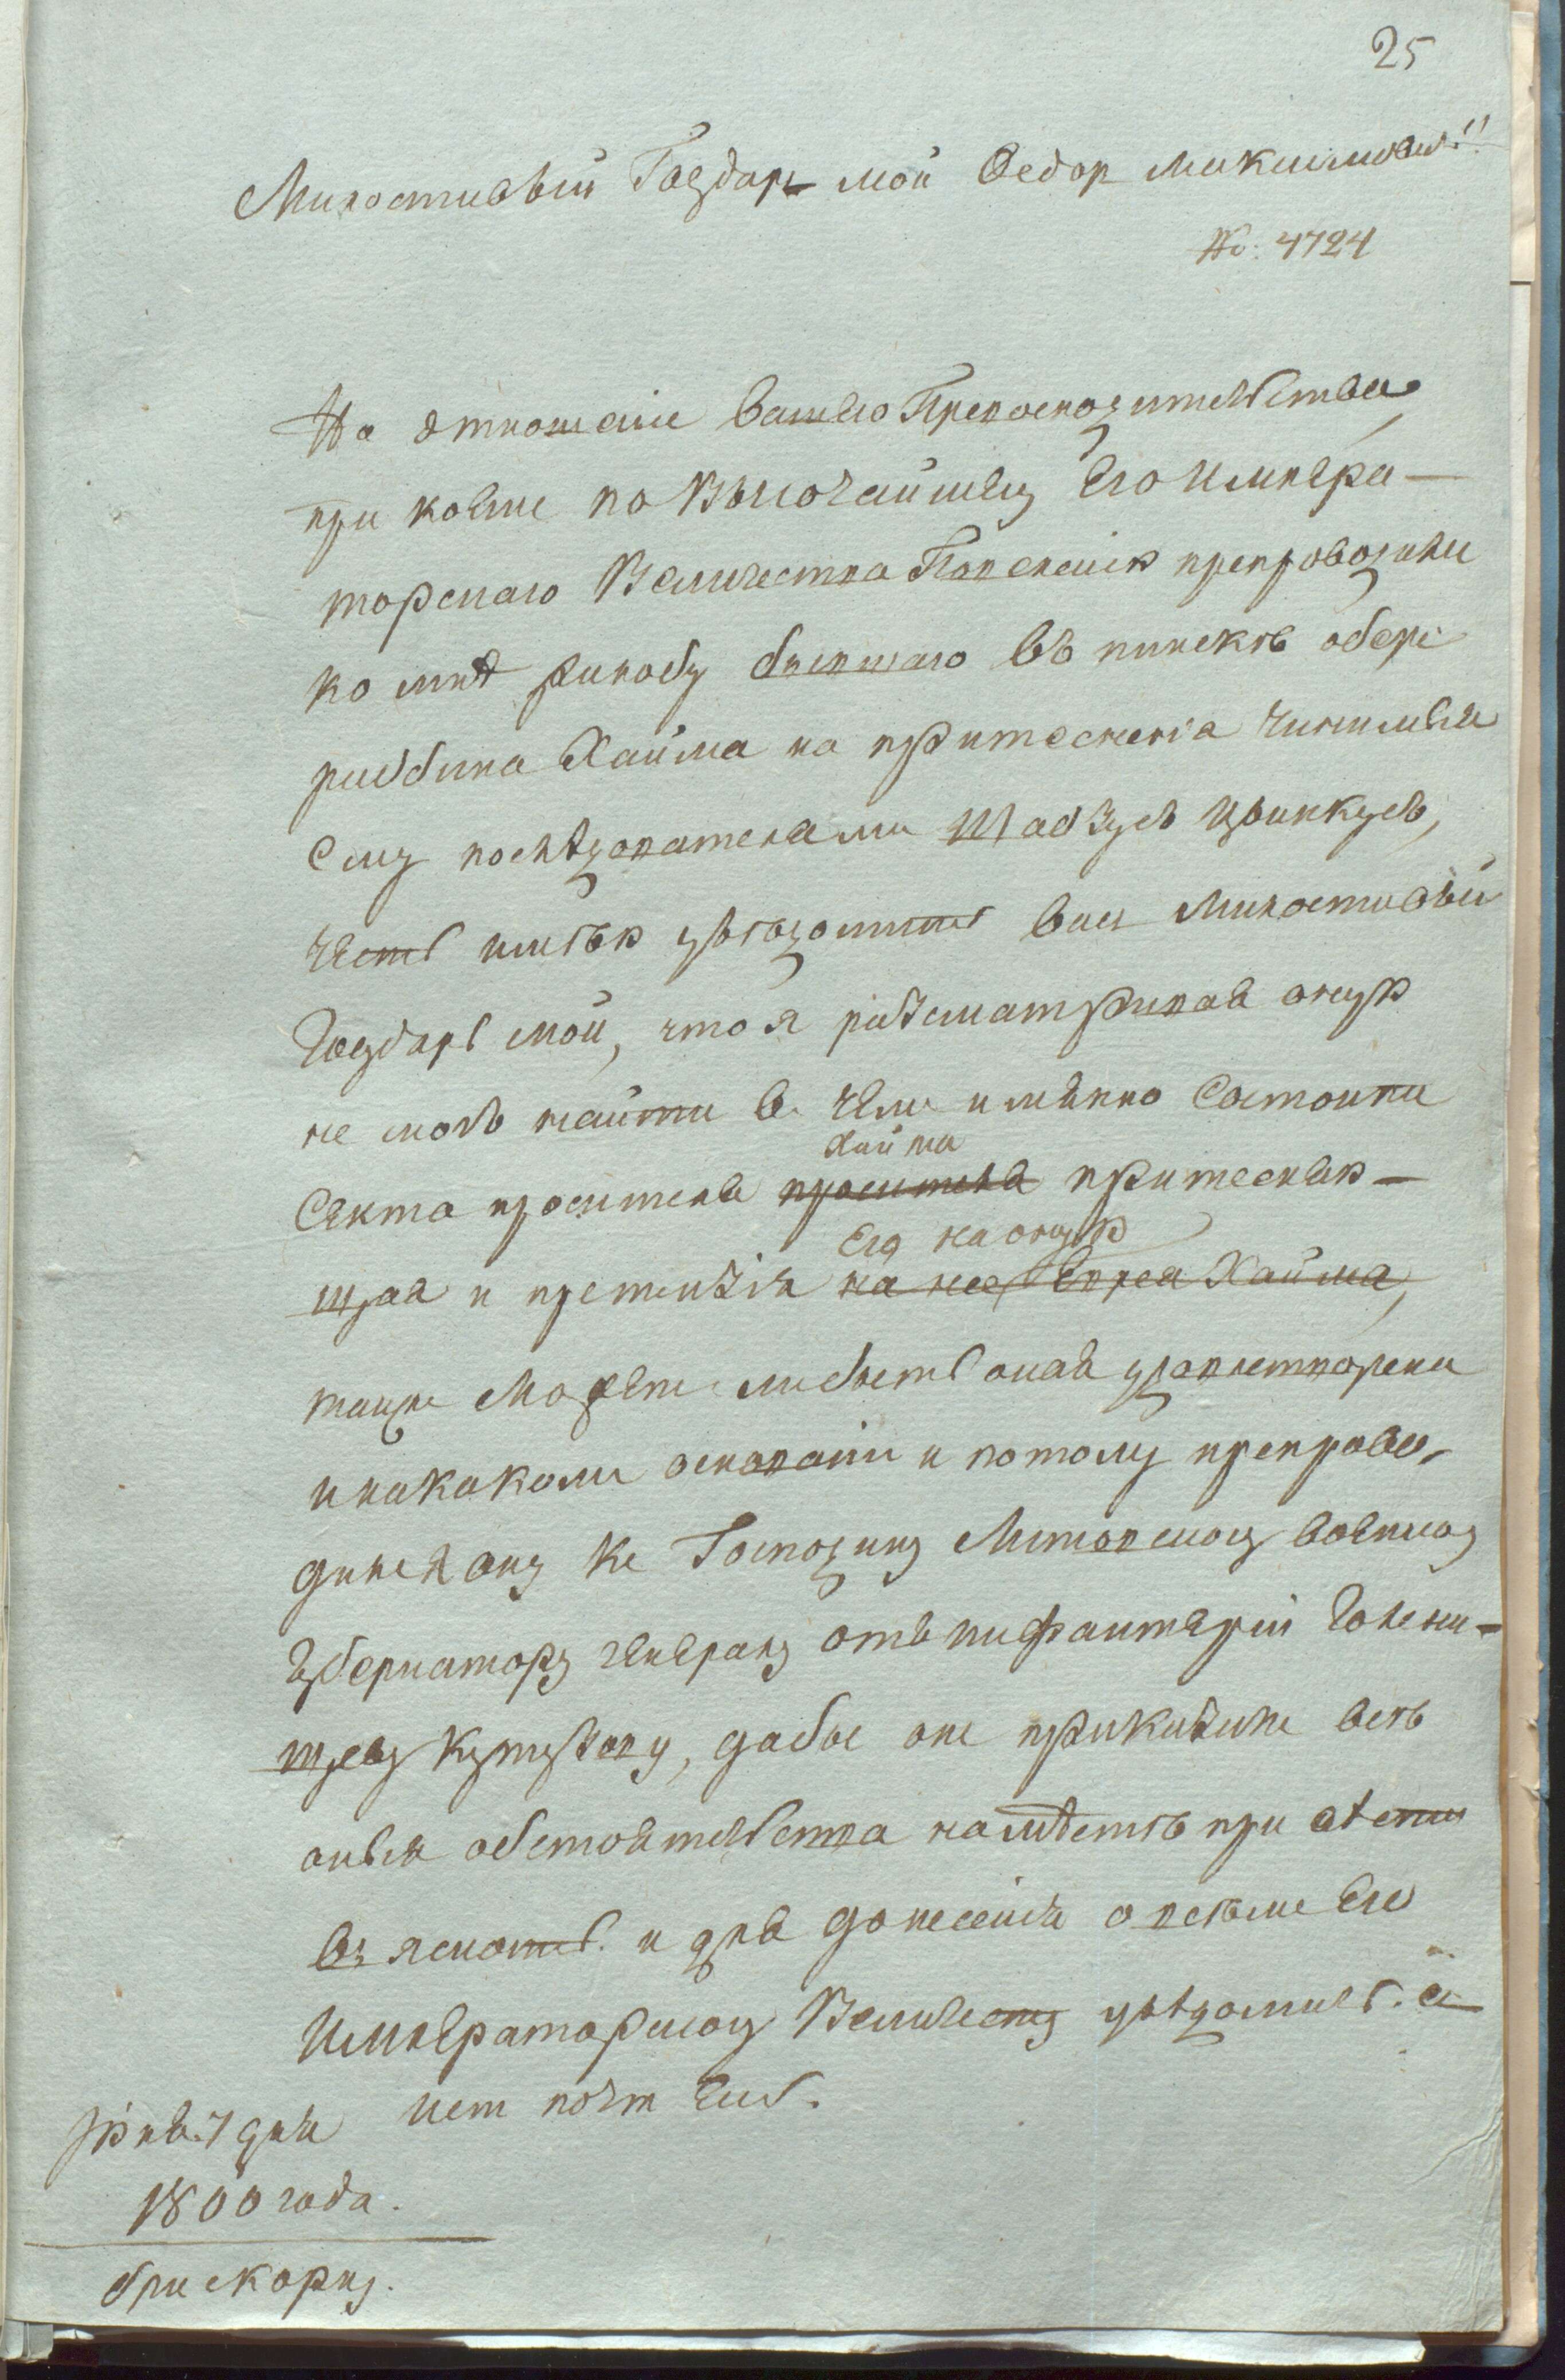 25
Милостивый Госдарь мой Федор Максимович!
№: 4724
На отношение вашего Превосходительства,
при коем по Высочайшему Его Импера-
торскаго Величества Повелению препроводили
ко мне жалобу бывшаго въ пинске обер
раббина Хайма на притеснения чинимыя
ему последователями Шабзуев Цвинкуев,
честь имею уведомить вас Милостивый
Госдарь мой, что я разсматривая оную
не мог найти в чем имянно Состоитъ
Хайма
Секта просителя просителя притесняю-
Его на оную
щая и претензия на нее Еврея Хайма,
также Может либыть оная удовлетворена
и на каком основании и потому препрово-
дил я ону к Господину Литовскому военному
губернатору генералу отъ инфантерии Голени-
щеву Кутузову, дабы он приказал все
оныя обстоятельства на месте при
в ясность. и для донесения о всем Его
Императорскому Величеству уведомил. и
нет почт Ешь.
7 дня
1800 года.